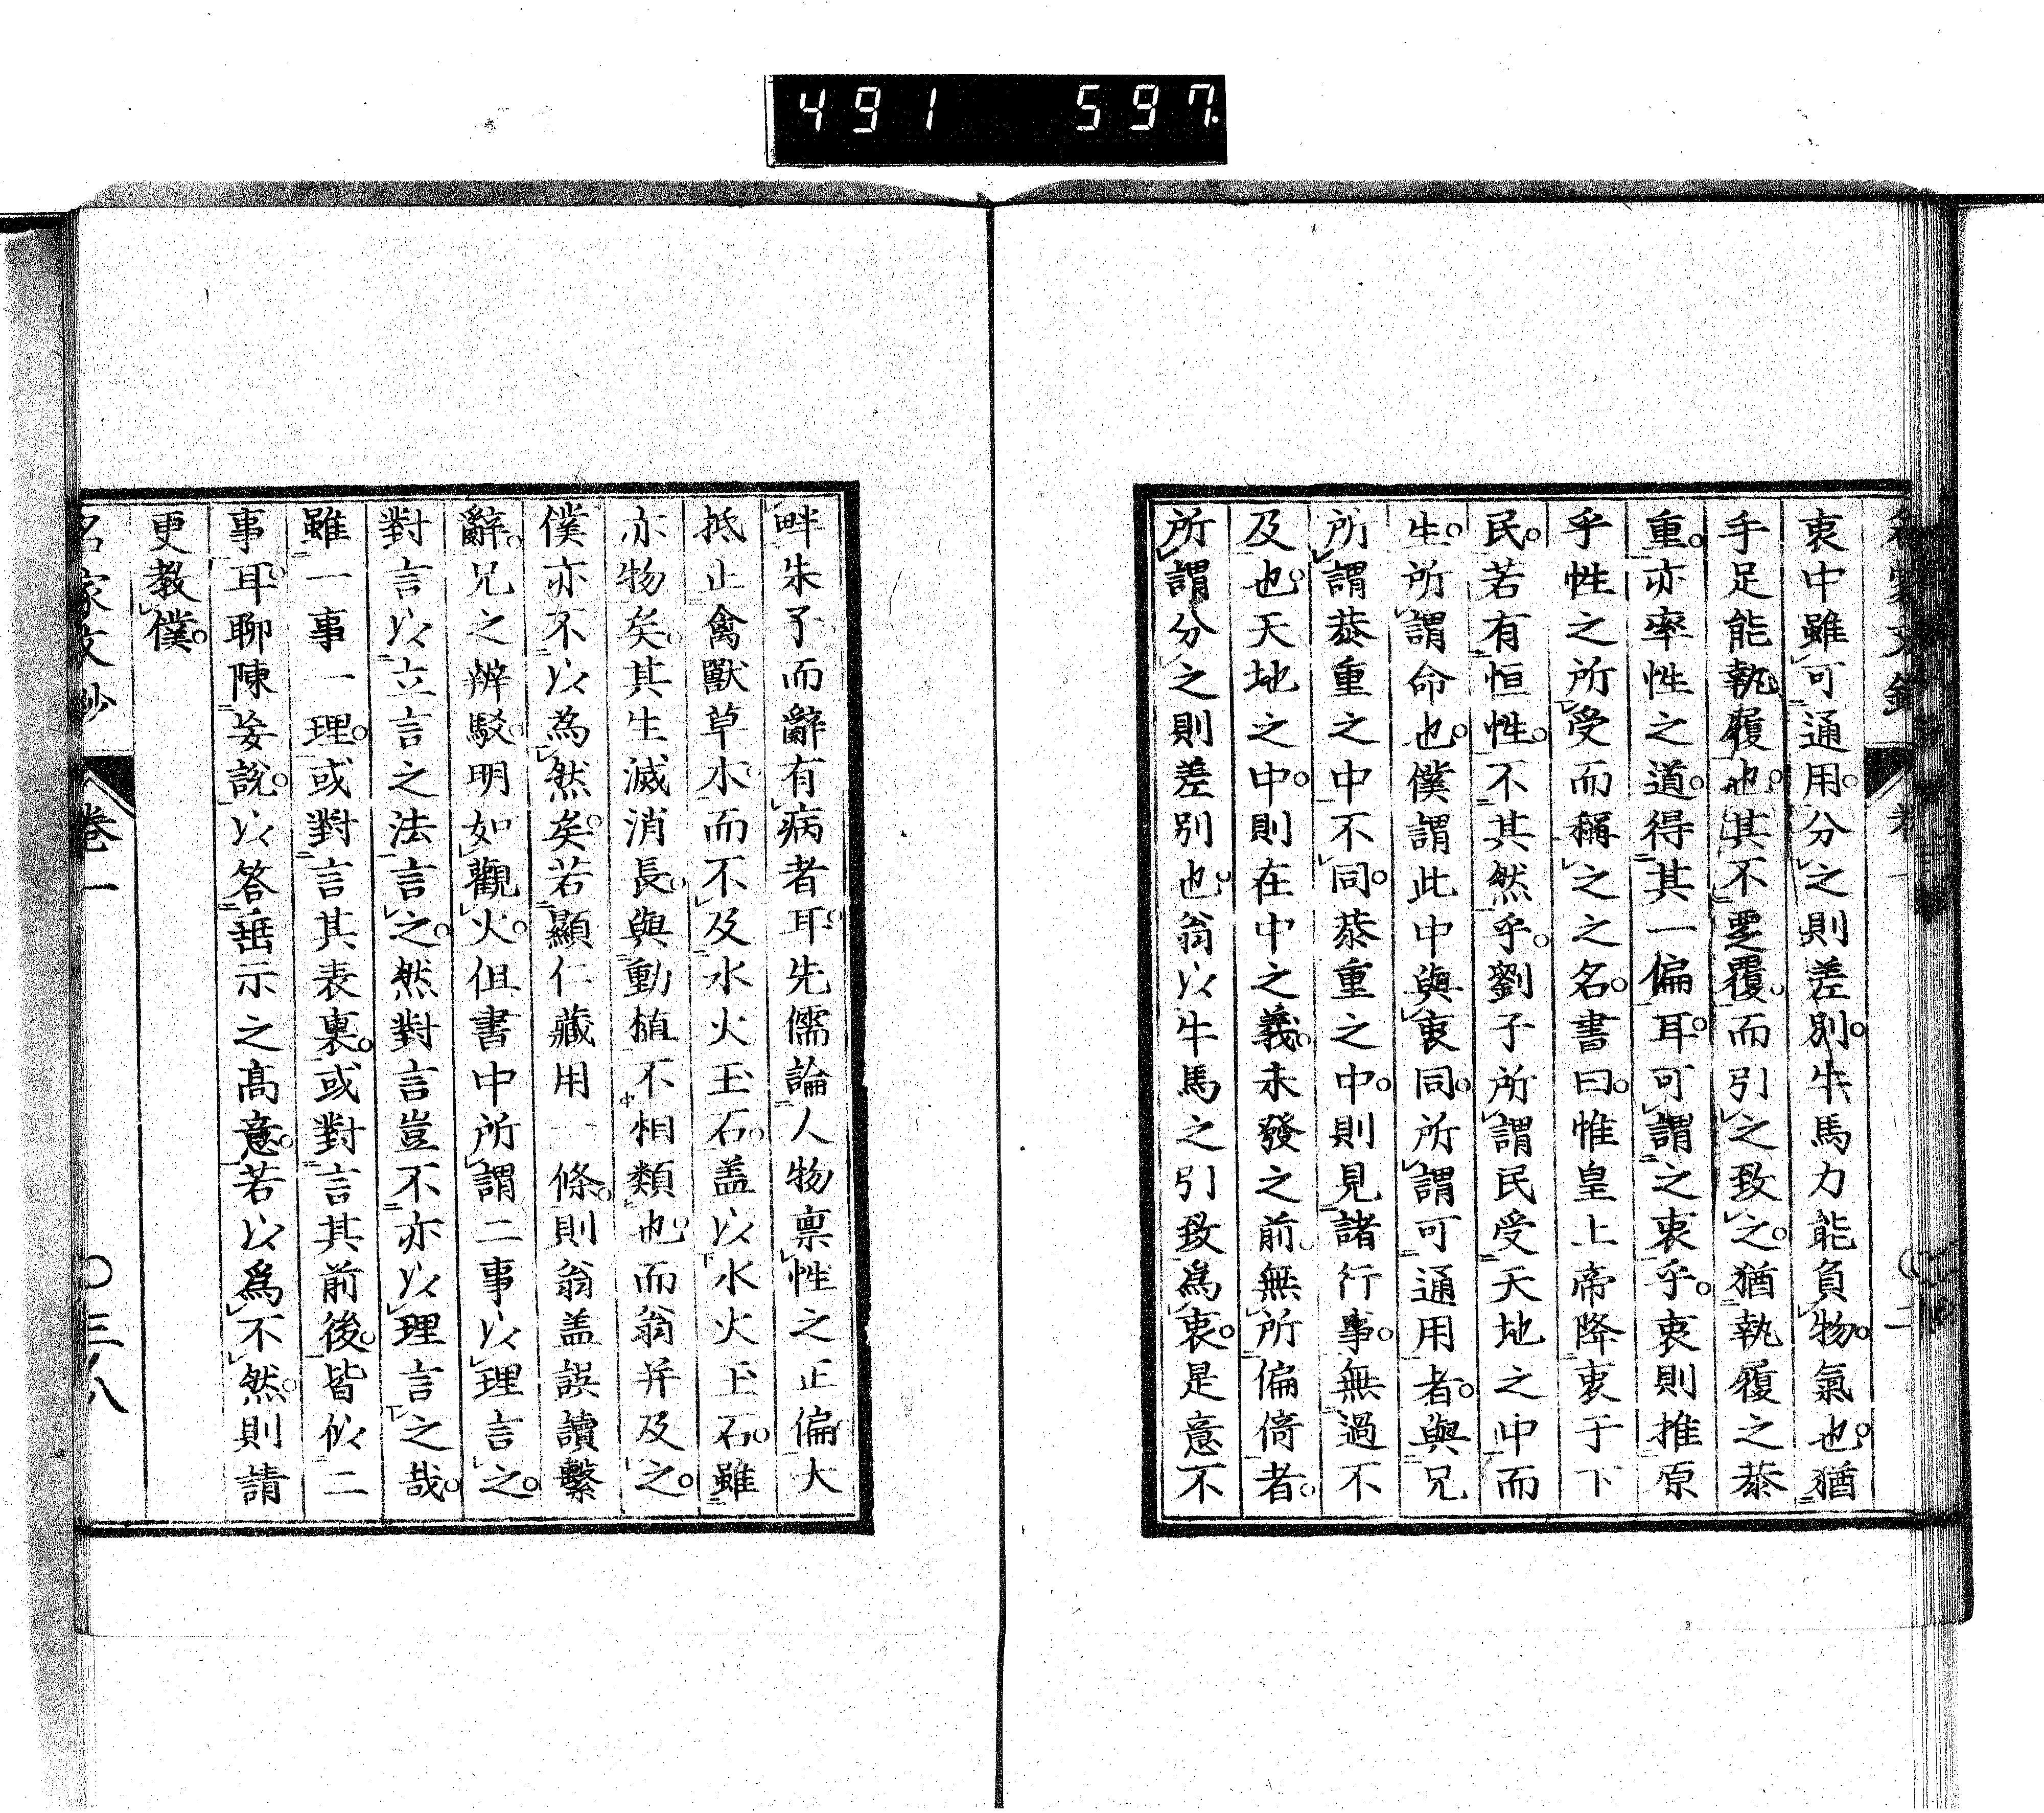 491 597
衷中雖可通用。分之則差別。牛馬力能負物。氣也。猶
手足能執履也。其不乱覆。而引之致之。猶執履之恭
重。亦率性之道。得其一偏耳。可謂之衷乎。衷則推原
乎性之所受而稱之之名。書曰。惟皇上帝降衷于下
民。若有恒性。不其然乎。劉子所謂民受天地之中而
生。所謂命也。僕謂此中與衷同。所謂可通用者。與兄
所謂恭重之中不同。恭重之中。則見諸行事。無過不
及也。天地之中。則在中之義。未發之前。無所偏倚者。
所謂分之則差別也。翁以牛馬之引致為衷。是意不
畔朱子而辭有病者耳。先儒論人物禀性之正偏大
抵止禽獸草木。而不及水火玉石。盖以水火玉石。雖
亦物矣。其生滅消長。與動植不相類也。而翁并及之。
僕亦不以為然矣。若顯仁藏用一條。則翁盖誤讀繫
辭。兄之辨駁。明如觀火。但書中所謂二事以理言之。
對言以立言之法言之。然對言豈不亦以理言之哉。
雖一事一理。或對言其表裏。或對言其前後。皆似二
事耳。聊陳妄說。以答垂示之高意。若以為不然。則請
更教僕。
名家文抄 卷一 〇三八